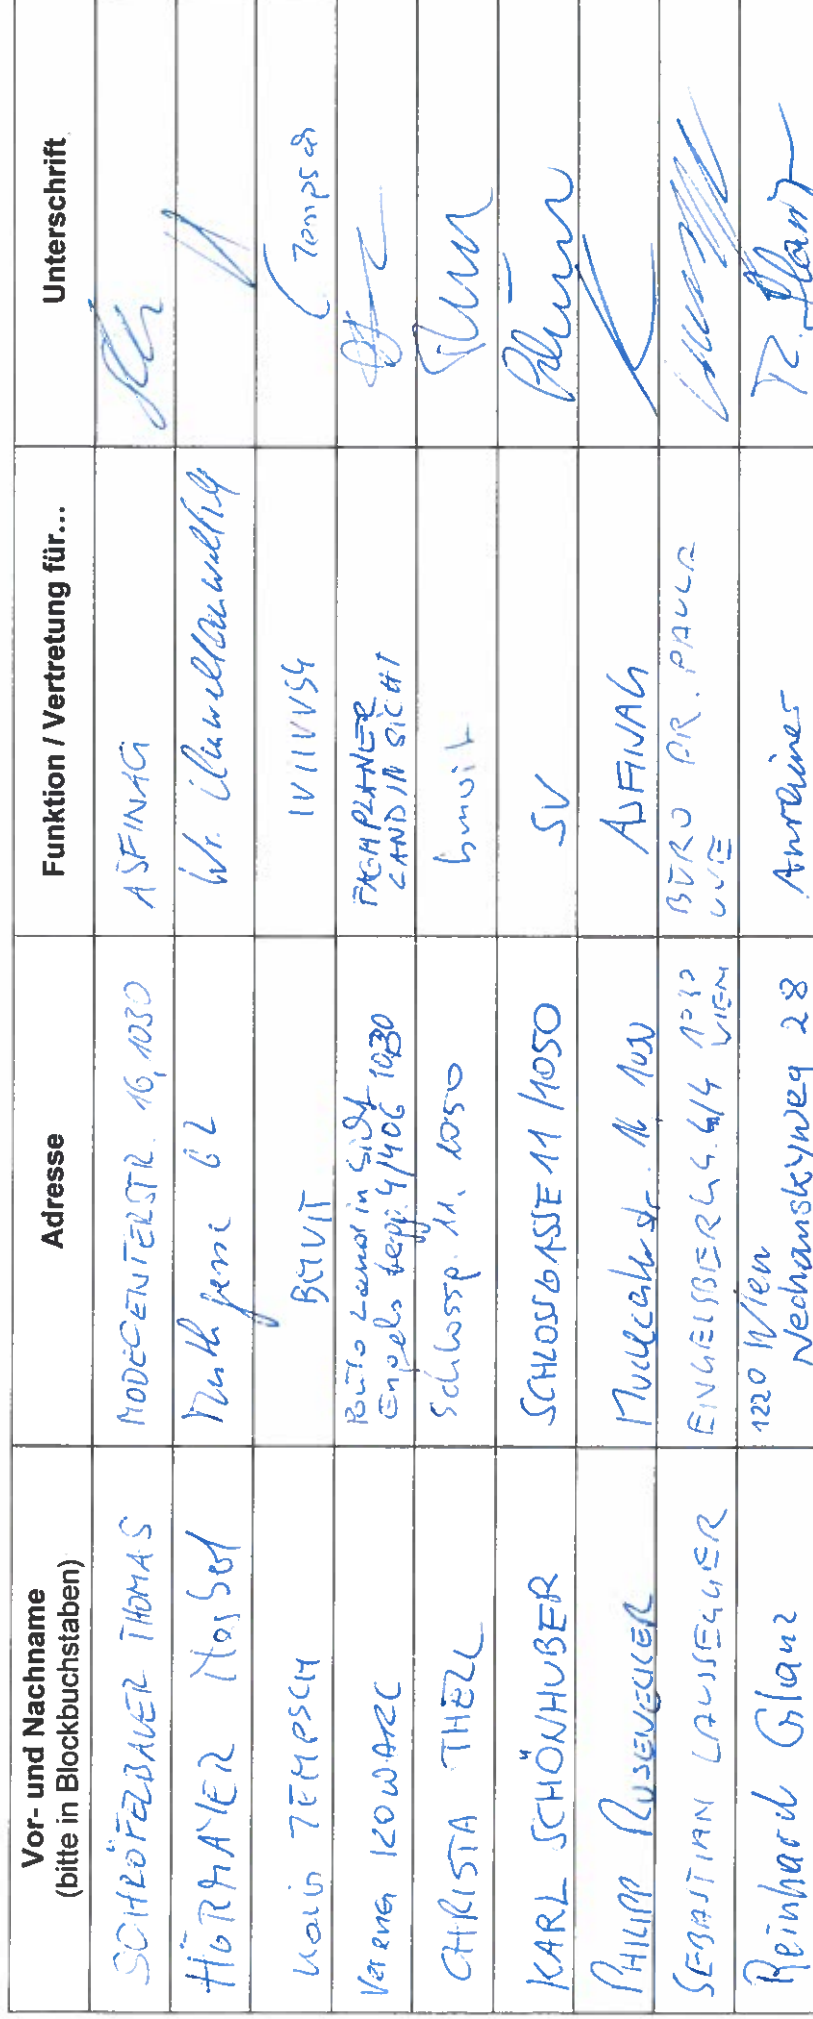 Vor- und Nachname
(bitte in Blockbuchstaben)
Adresse
Funktion / Vertretung für...
Unterschrift
SCHRÖFELBAUER THOMAS
MODECENTERSTR. 16, 1030
ASFINAG
HÖRMAYER
62
Wr. Umweltanwaltschaft
Karin TEMPSCH
BMVIT
IV/IVVS4
Tempsch
Verena KOWARC
Büro Land in Sicht
Engelsbergg. 4/406 1030
FACHPLANER
LAND IN SICHT
CHRISTA THELL
Schlossg. 11, 1050
bmvit
KARL SCHÖNHUBER
SCHLOSSGASSE 11/1050
SV
PHILIPP ROSENECKER
16 1030
ASFINAG
SEBASTIAN LAUSSEGGER
ENGELSBERGG. 4/4 1030
WIEN
BÜRO PR. PAULA
UVE
Reinhard Glanz
1220 Wien
Nechanskyweg 28
Anrainer
R. Glanz